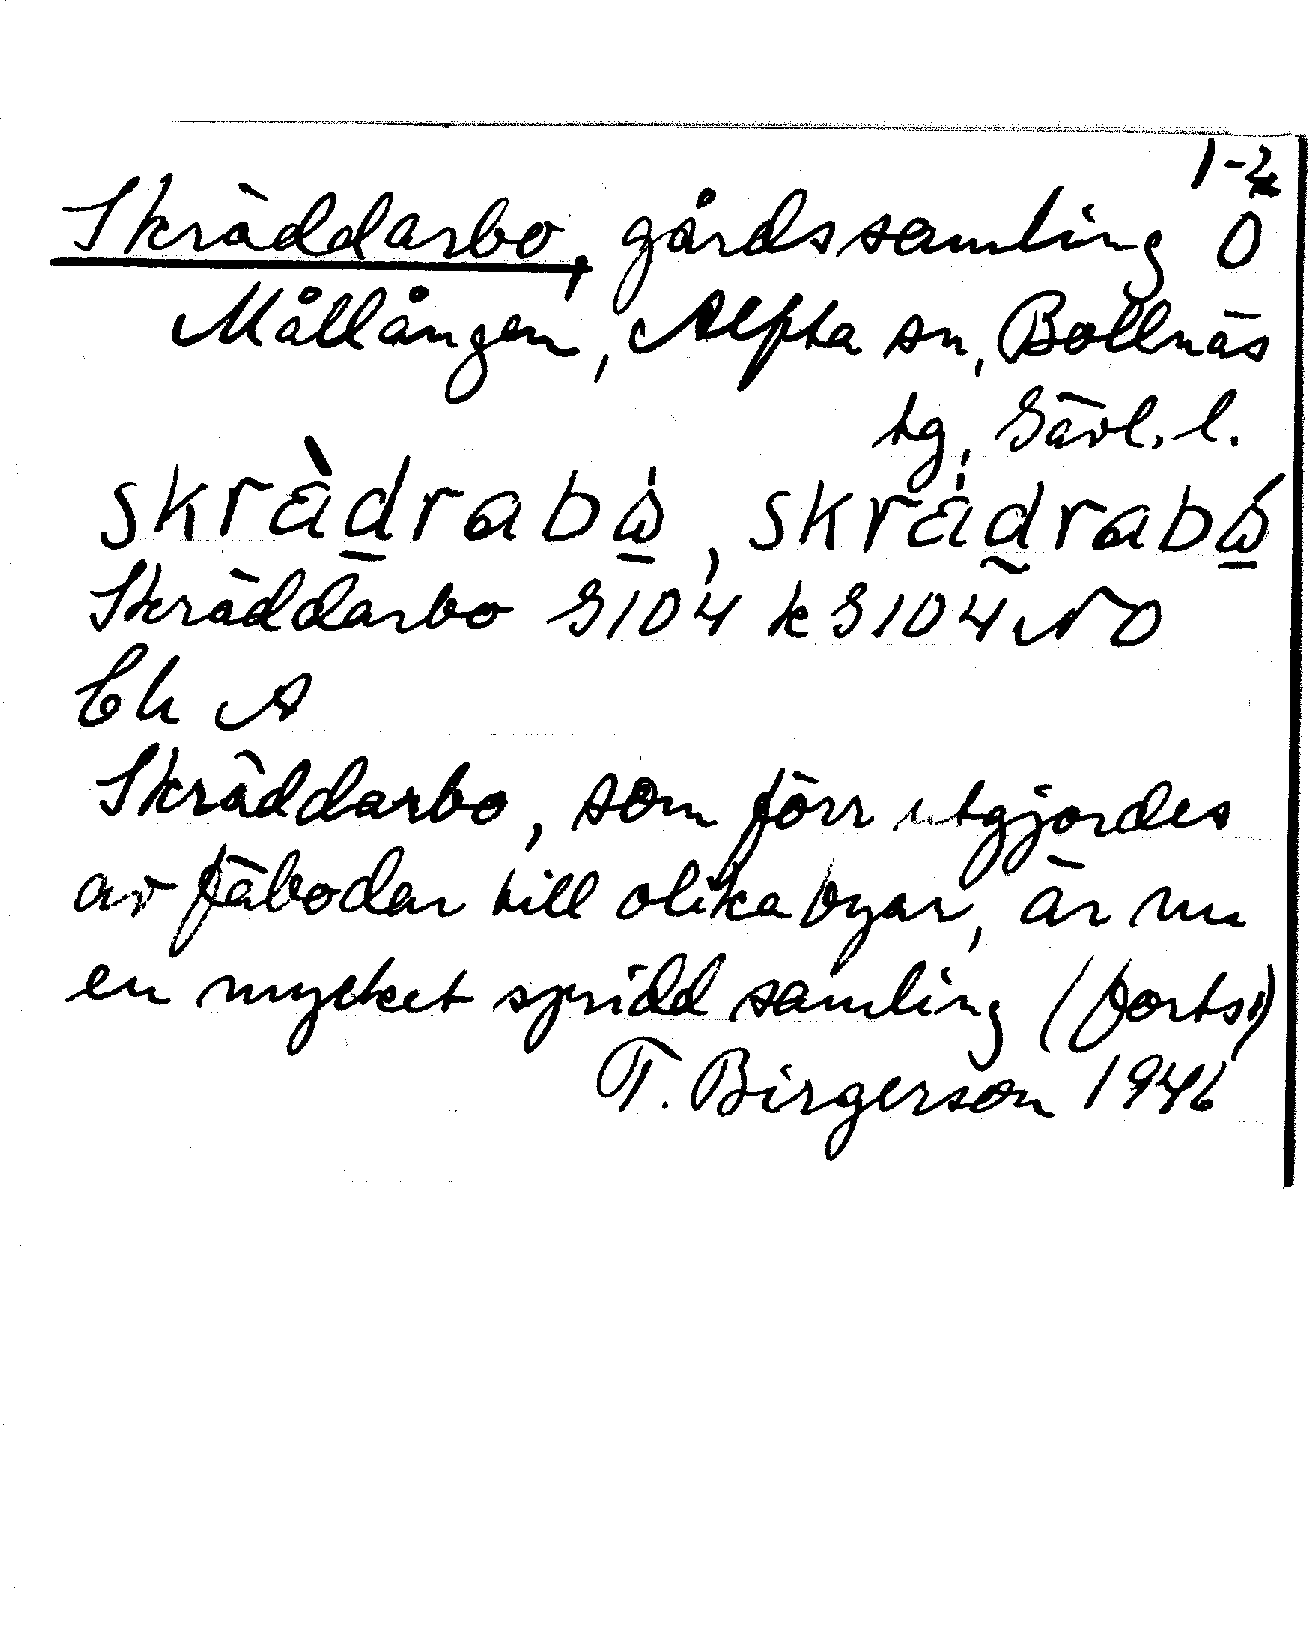 1-2
Skräddarbo, gårdssamling O
Mållången, Alfta sn, Bollnäs
tg, Gävl. l.
skrà̀drabὼ, skrádrabώ
Skräddarbo G104 k G104 NO
Ek A
Skräddarbo, som förr utgjordes
av fäbodar till olika byar, är nu
en mycket spridd samling (forts.)
T. Birgerson 1946